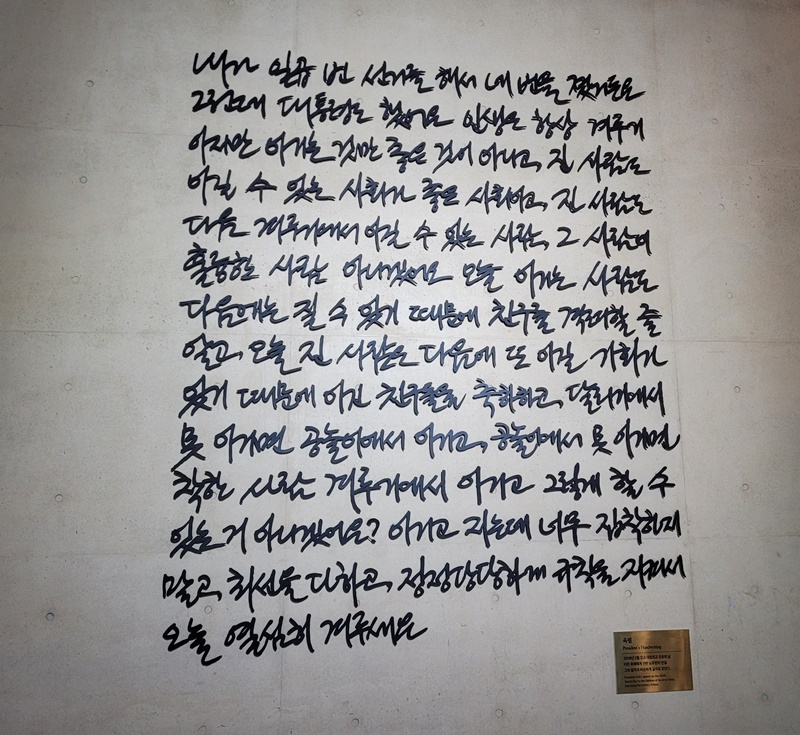 내가 일곱 번 선거를 해서 네 번을 졌거든요
그런데 대통령도 했어요 인생은 항상 겨루기
이지만 이기는 것만 좋은 것이 아니고, 진 사람도
이길 수 있는 사회가 좋은 사회이고, 진 사람도
다음 겨루기에서 이길 수 있는 사람, 그 사람이
훌륭한 사람 아니겠어요 오늘 이기는 사람도
다음에는 질 수 있기 때문에 친구를 격려할 줄
알고, 오늘 진 사람은 다음에 또 이길 기회가
있기 때문에 이긴 친구들을 축하하고, 달리기에서
못 이기면 공놀이에서 이기고, 공놀이에서 못 이기면
착한 사람 겨루기에서 이기고 그렇게 할 수
있는 거 아니겠어요? 이기고 지는데 너무 집착하지
말고, 최선을 다하고, 정정당당하게 규칙을 지켜서
오늘 열심히 겨루세요
육필
President's Handwriting